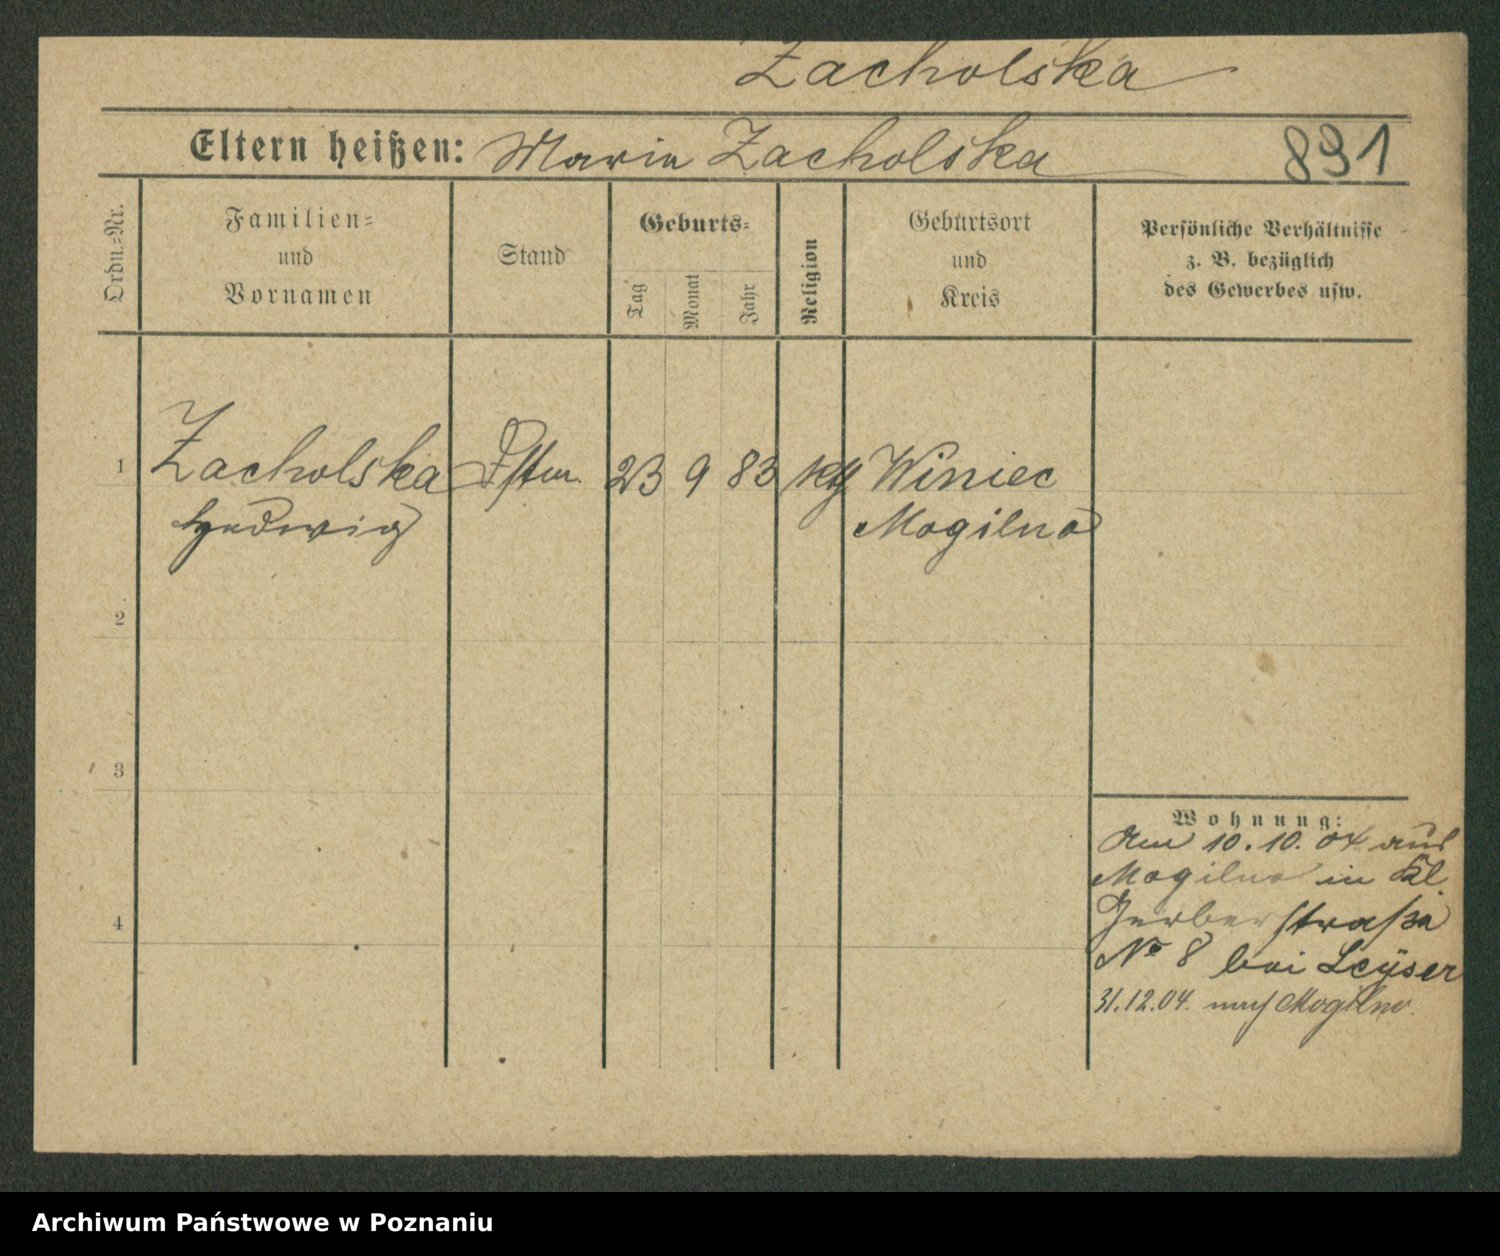 Zacholska
Eltern heißen: Marie Zacholska 891
Ordn.=Nr.
Familien=
und
Vornamen
Stand
Geburts=
Tag
Monat
Jahr
Religion
Geburtsort
und
Kreis
Persönliche Verhältnisse
z. B. bezüglich
des Gewerbes usw.
1 Zacholska 23 9 83 kth Winiec
Hedwig Mogilno
2
3
4
Wohnung:
Am 10.10.04 aus
Mogilno in Kl.
Gerberstraße
No 8 bei Leyser
31.12.04. nach Mogilno.
Archiwum Państwowe w Poznaniu